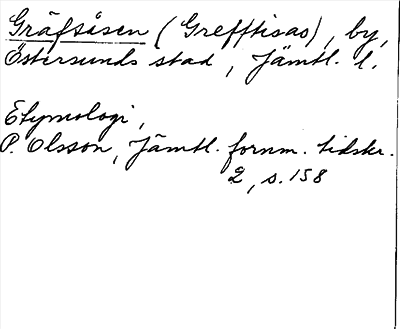 Gräfsåsen (Grefftisao), by,
Östersunds stad, Jämtl. l.
Etymologi,
P. Olsson, Jämtl. fornm. tidskr.
2, s. 158